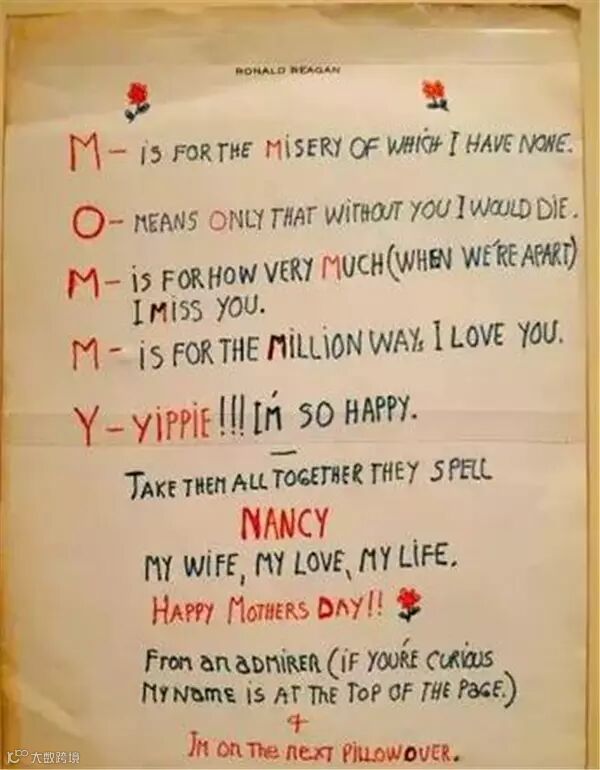 RONALD REAGAN
M - is FOR THE MiSERY OF WHiCH I HAVE NONE.
O - MEANS ONLY THAT WITHOUT YOU I WOULD DIE.
M - iS FOR HOW VERY MUCH (WHEN WE'RE APART)
I MISS YOU.
M - iS FOR THE MiLLION WAYS I LOVE YOU.
Y - YiPPiE!!! I'M SO HAPPY.
TAKE THEM ALL TOGETHER THEY SPELL
NANCY
MY WIFE, MY LOVE, MY LIFE.
HAPPY MOTHERS DAY!!
From an aDMIRER (iF YOU'RE CURIOUS
MY NaME IS AT THE TOP OF THE PaGE.)
&
I'M on The neXT PiLLOW OVER.
大数跨境